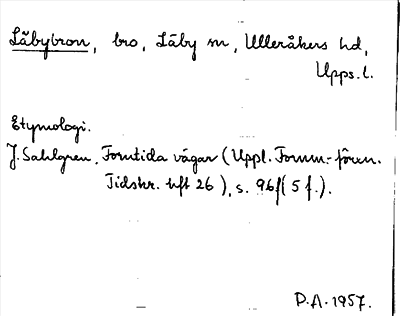 Läbybron, bro, Läby sn, Ulleråkers hd,
Upps. l.
Etymologi.
J. Sahlgren, Forntida vägar (Uppl. Fornm.-fören.
Tidskr. hft 26), s. 96f (5 f.).
D.A. 1957.